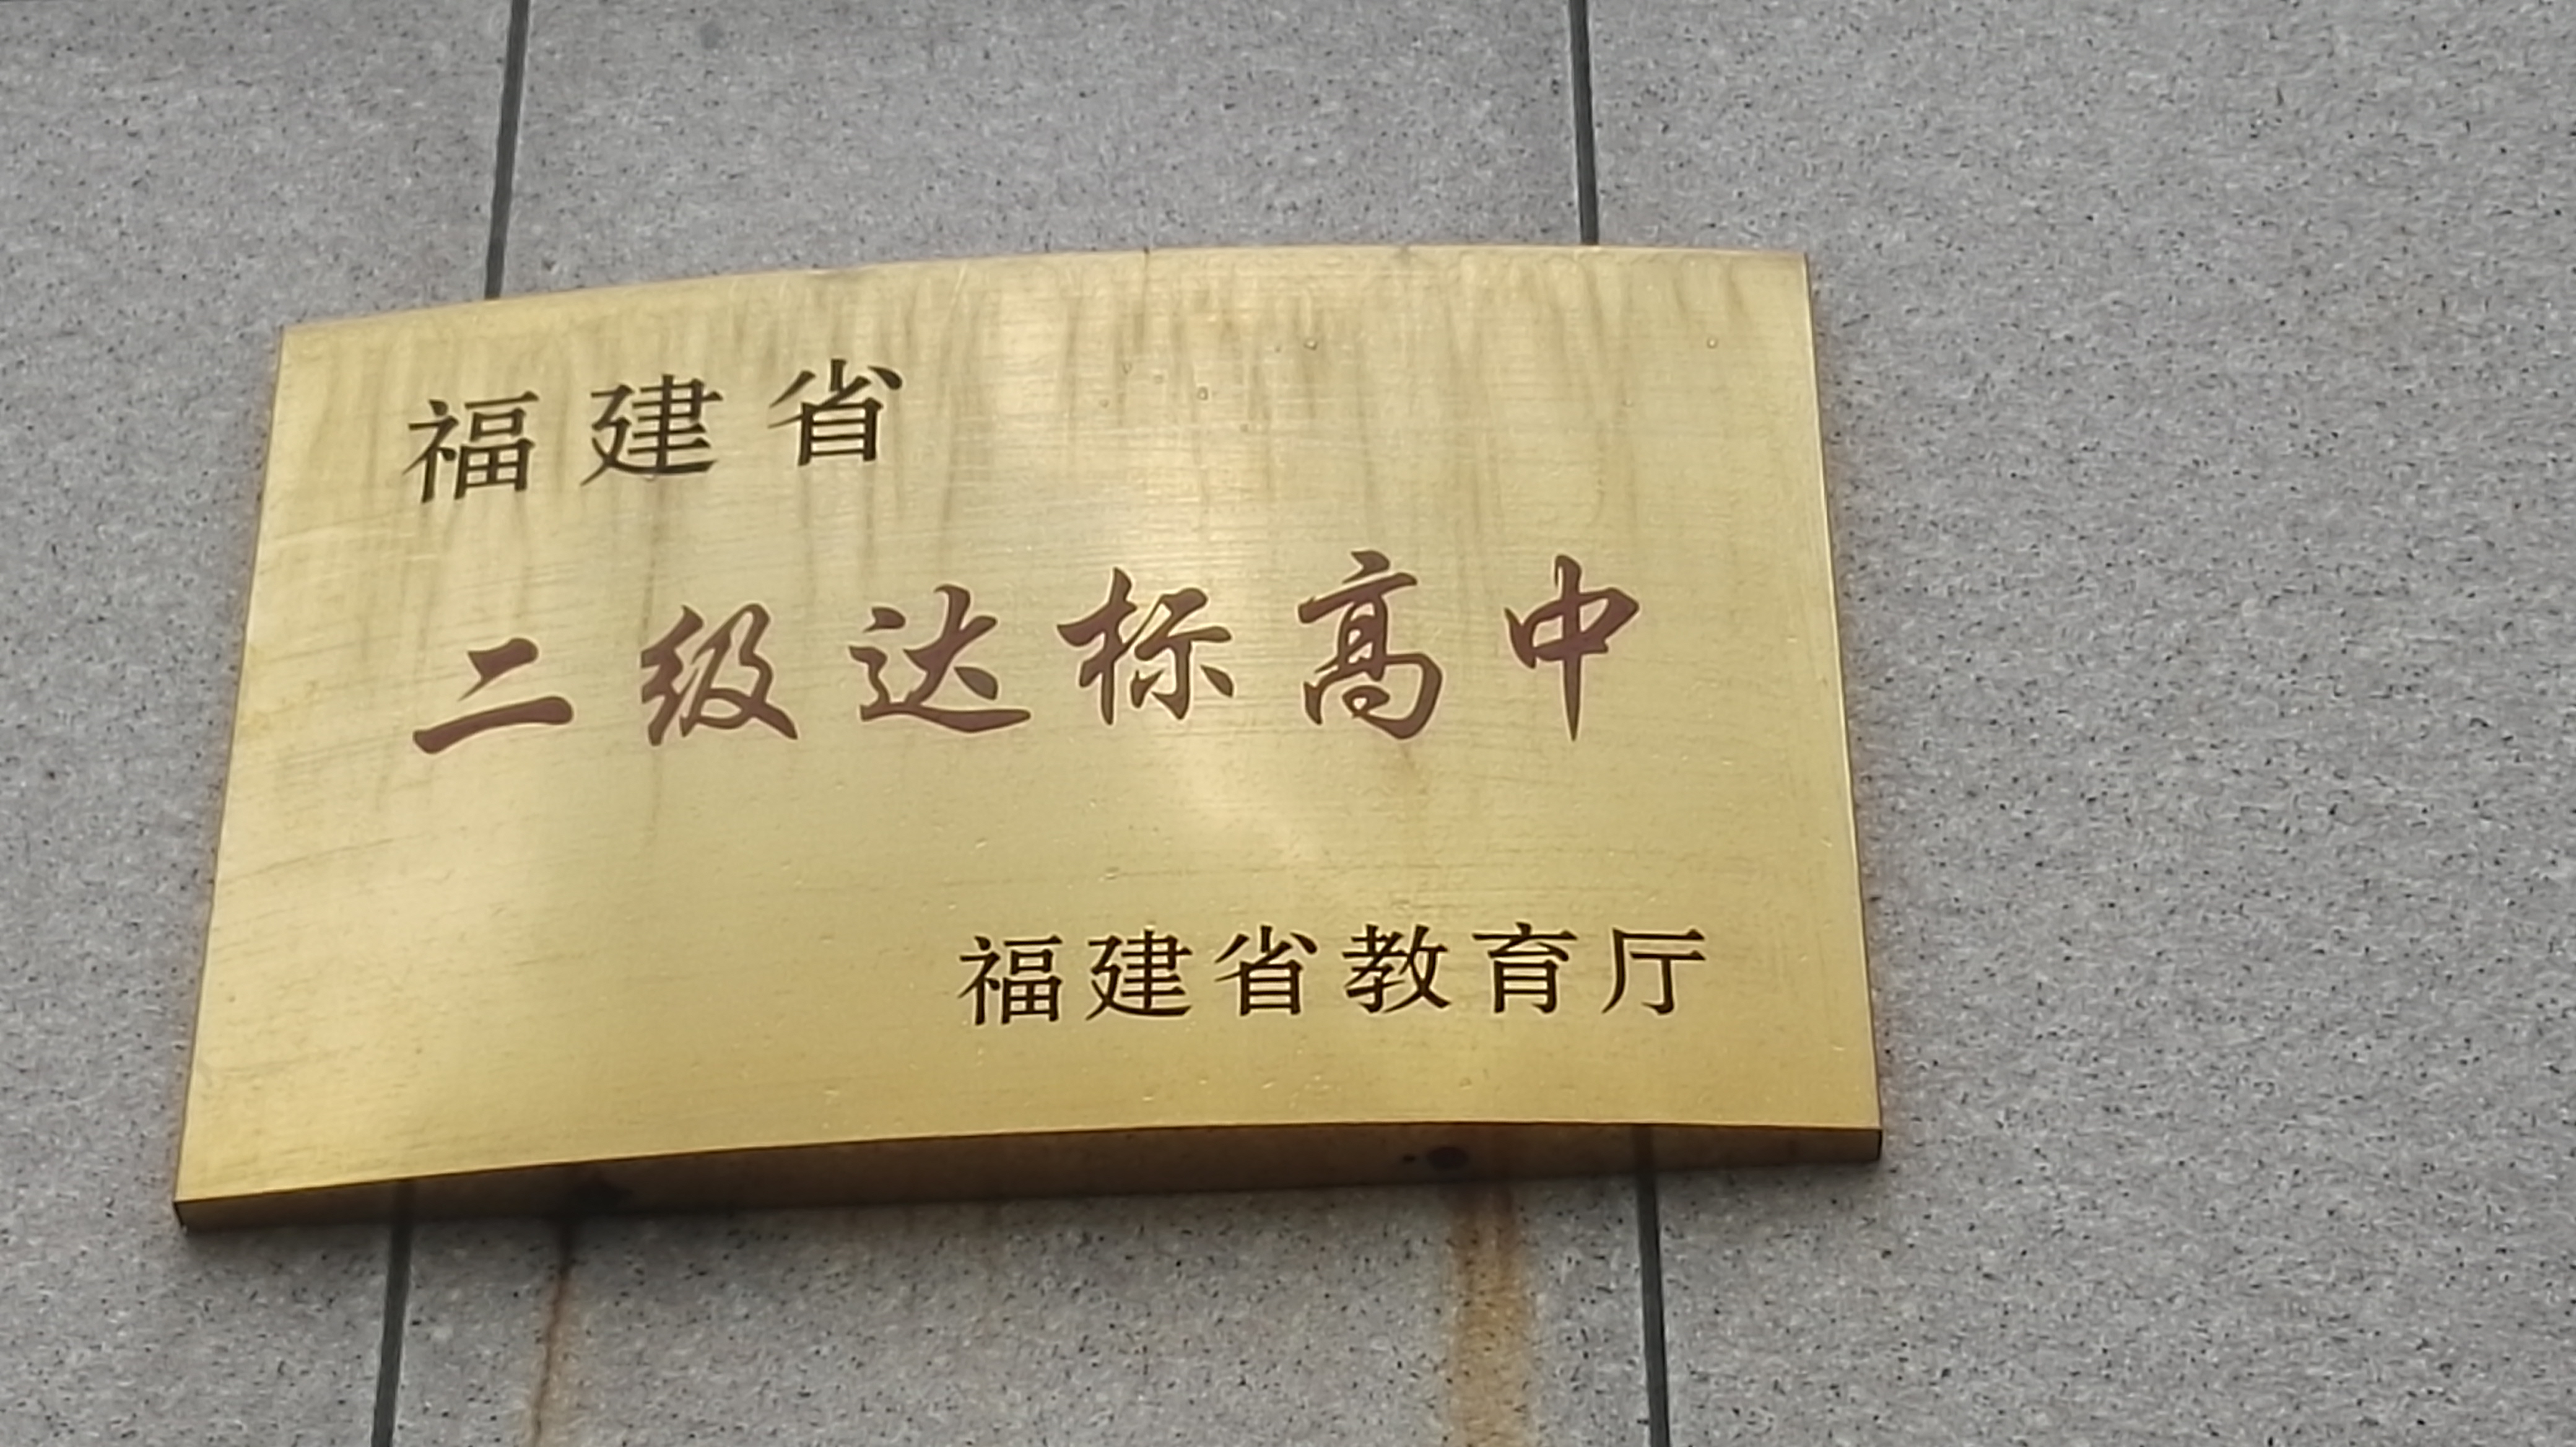 福建省
二级达标高中
福建省教育厅